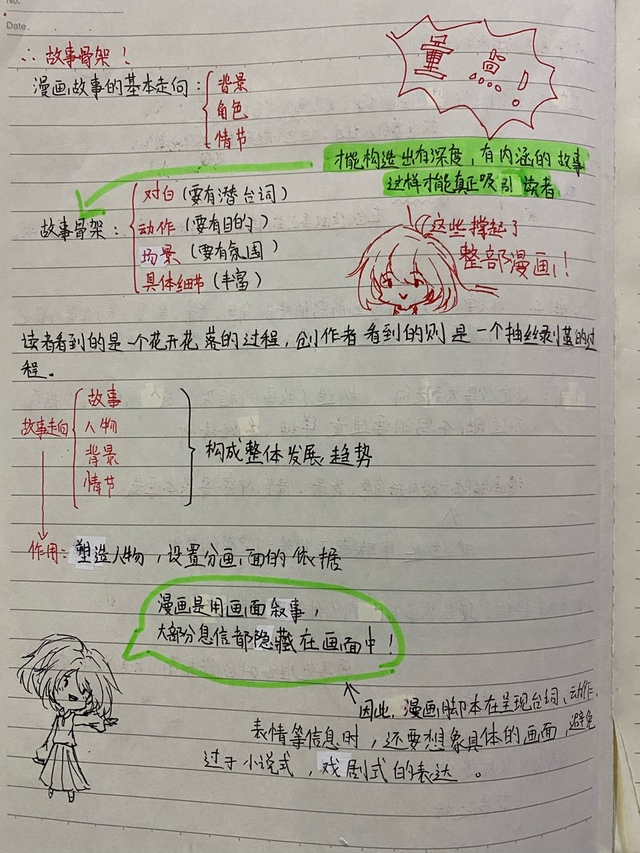 No.
Date.
∴ 故事骨架！
量高！
漫画故事的基本走向：
背景
角色
情节
才能构造出有深度，有内涵的故事
这样才能真正吸引读者
故事骨架：
对白（要有潜台词）
动作（要有目的）
场景（要有氛围）
具体细节（丰富）
这些撑起了
整部漫画！！
读者看到的是一个花开花落的过程，创作者看到的则是一个抽丝剥茧的过
程。
故事走向
故事
人物
背景
情节
构成整体发展趋势
作用：塑造人物，设置分画面的依据
漫画是用画面叙事，
大部分息信都隐藏在画面中！
因此，漫画脚本在呈现台词、动作、
表情等信息时，还要想象具体的画面，避免
过于小说式，戏剧式的表达。